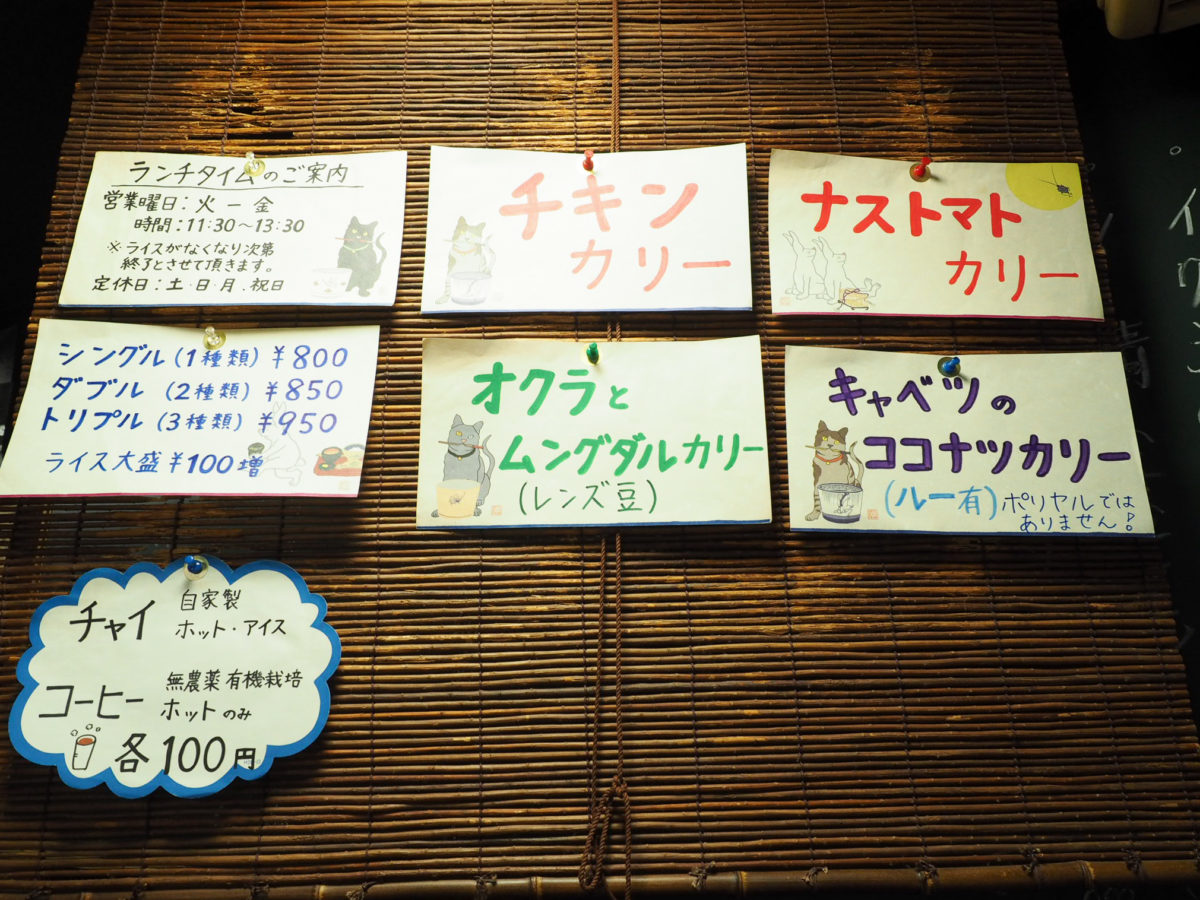 ランチタイムのご案内
営業曜日：火ー金
時間：11:30～13:30
※ライスがなくなり次第
終了とさせて頂きます。
定休日：土・日・月.祝日
チキン
カリー
ナストマト
カリー
シングル(1種類)¥800
ダブル(2種類)¥850
トリプル(3種類)¥950
ライス大盛¥100増
オクラと
ムングダルカリー
(レンズ豆)
キャベツの
ココナツカリー
(ルー有)ポリヤルでは
ありません!
チャイ 自家製
ホット・アイス
コーヒー 無農薬有機栽培
ホットのみ
各100円